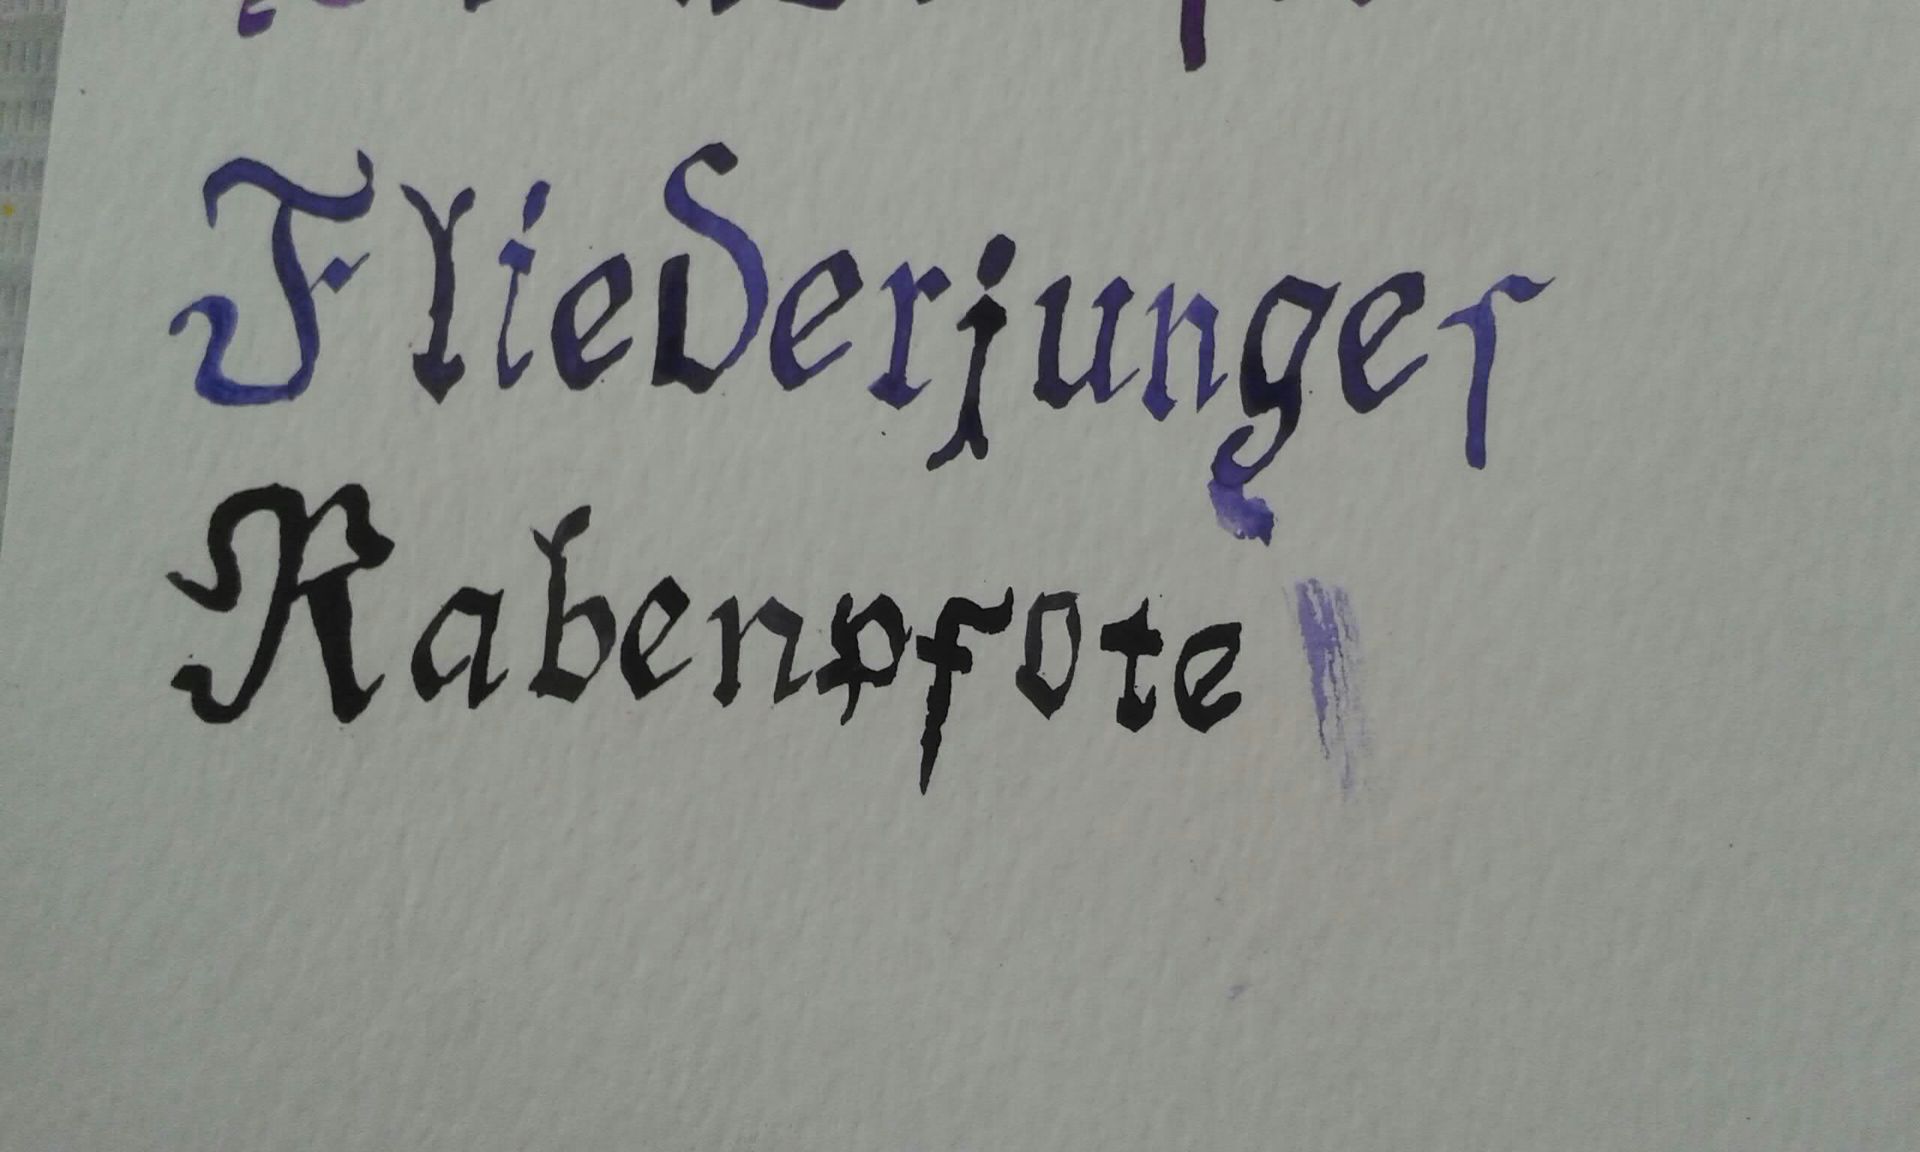 Fliederjunges
Rabenpfote